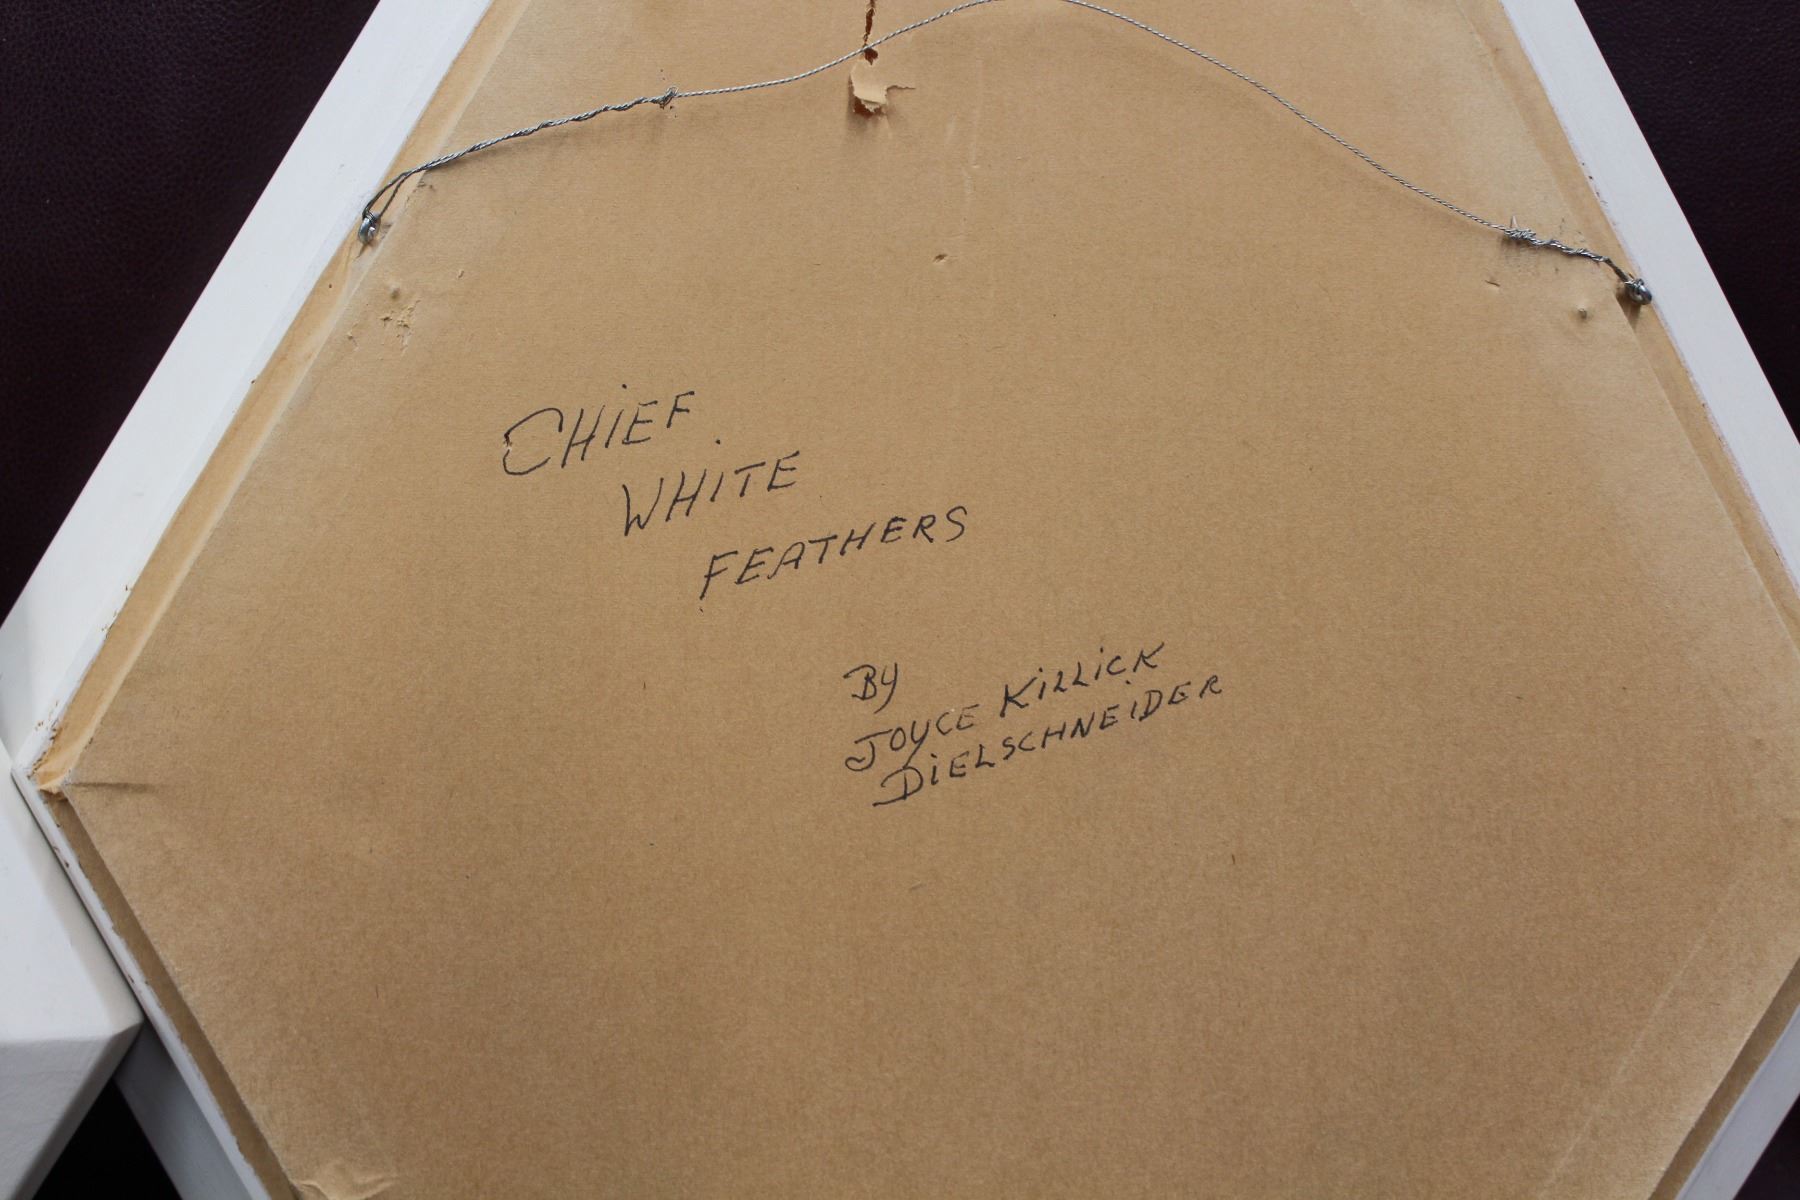 CHiEF
WHiTE
FEATHERS
By
JOYCE KiLLiCK
DiELSCHNEiDER